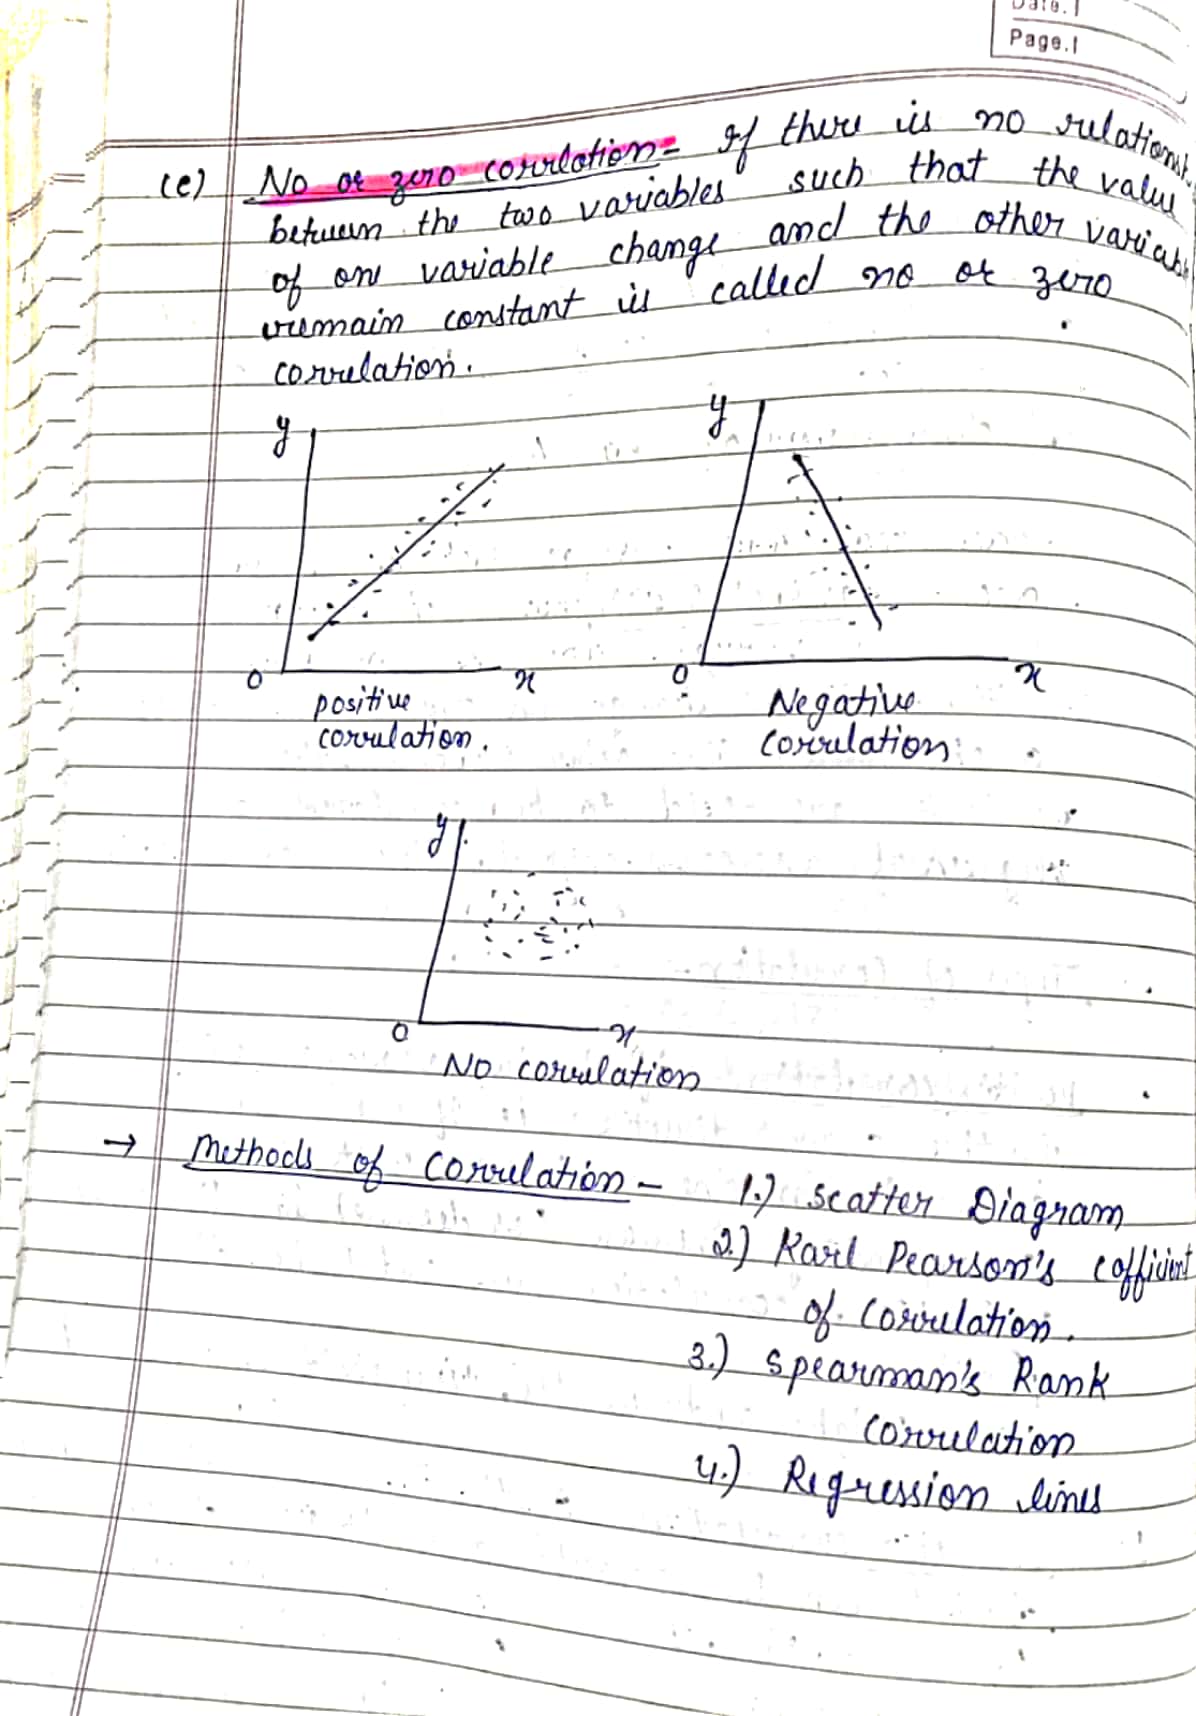 Date.
Page.
(e) No or zero correlation= If there is no
between the two variables such that the value
of one variable change and the other
remain constant is called no or zero
correlation.
y
y
O
x
O
x
positive
correlation.
Negative
correlation
y
O
x
No correlation
→ Methods of Correlation - 1.) Scatter Diagram
2.) Karl Pearson's Cofficient
of Correlation.
3.) Spearman's Rank
Correlation
4.) Regression lines